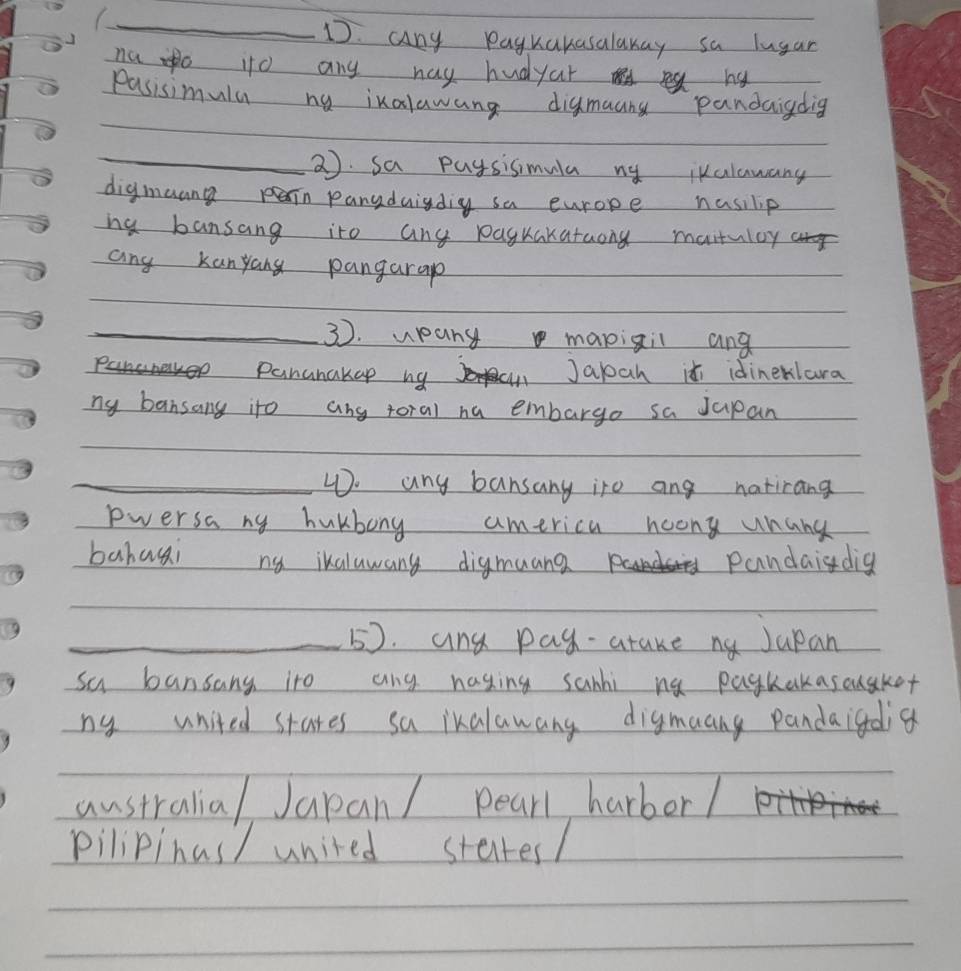 1). ang pagkakasalakay sa lugar
na ito ang nag hudyat ng
pasisimula ng ikalawang digmaang pandaigdig
2). sa pagsisimula ng ikalawang
digmaang pangdaigdig sa europe nasilip
ng bansang ito ang pagkakataong maituloy
ang kanyang pangarap
3). upang mapigil ang
pananakop ng Japan it idineklara
ng bansang ito ang total na embargo sa Japan
4). ang bansang ito ang natirang
pwersa ng hukbong america noong unang
bahagi ng ikalawang digmaang pandaigdig
5). ang pag-atake ng Japan
sa bansang ito ang naging sanhi ng pagkakasangkot
ng united states sa ikalawang digmaang pandaigdig
australia/ Japan/ pearl harbor/
pilipinas/ united states/